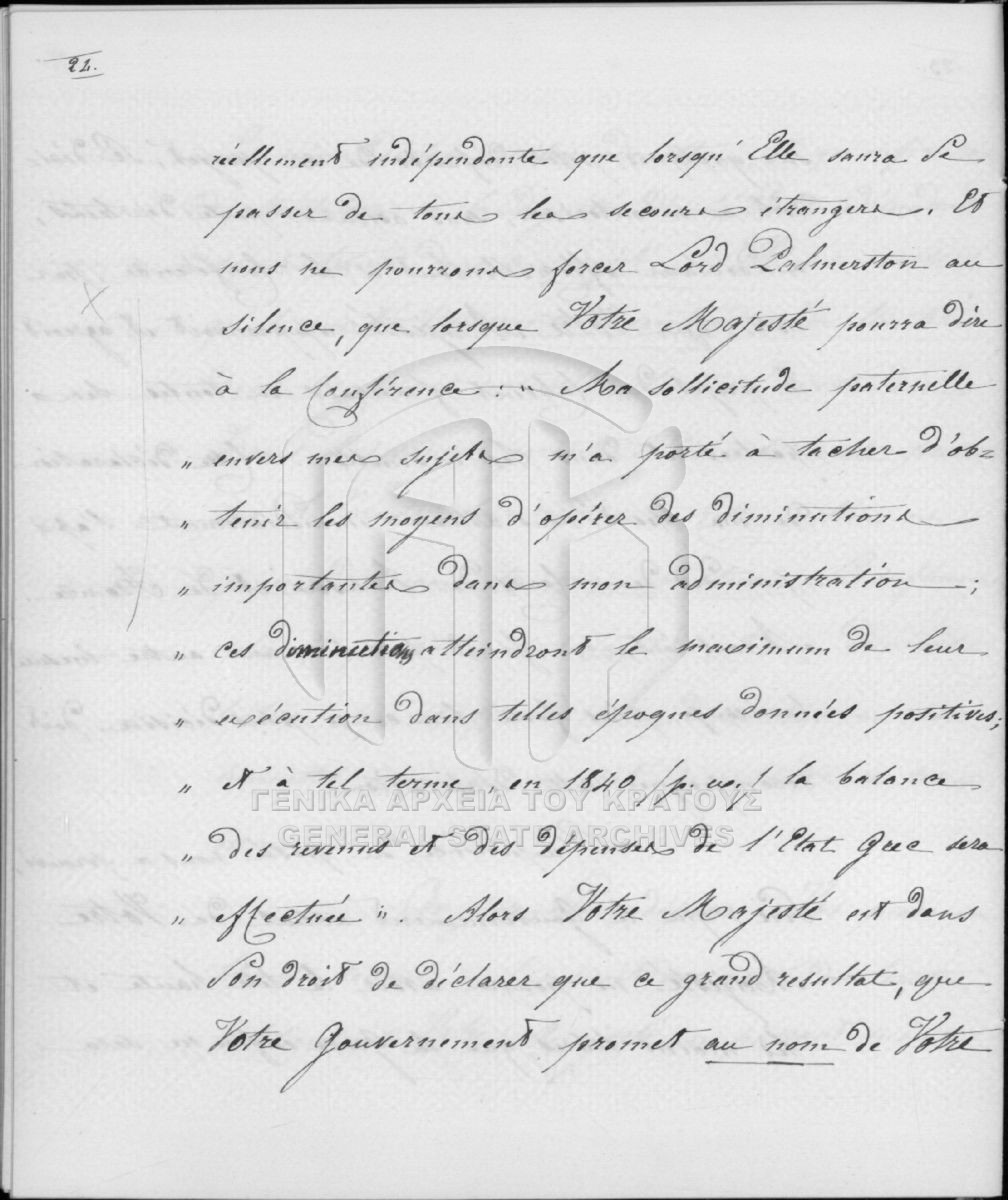 22.
réellement indépendante que lorsqu'Elle saura Se
passer de tous les secours étrangers. Et
nous ne pourrons forcer Lord Palmerston au
silence, que lorsque Votre Majesté pourra dire
à la Conférence : " Ma sollicitude paternelle
" envers mes sujets m'a porté à tacher d'ob=
" tenir les moyens d'opérer des diminutions
" importantes dans mon administration ;
" ces diminutions atteindront le maximum de leur
" exécution dans telles époques données positives ;
" et à tel terme, en 1840 /p. ex./ la balance
ΓΕΝΙΚΑ ΑΡΧΕΙΑ ΤΟΥ ΚΡΑΤΟΥΣ
GENERAL STATE ARCHIVES
" des revenus et des dépenses de l'Etat Grec sera
" effectuée ". Alors Votre Majesté est dans
Son droit de déclarer que ce grand resultat, que
Votre Gouvernement promet au nom de Votre